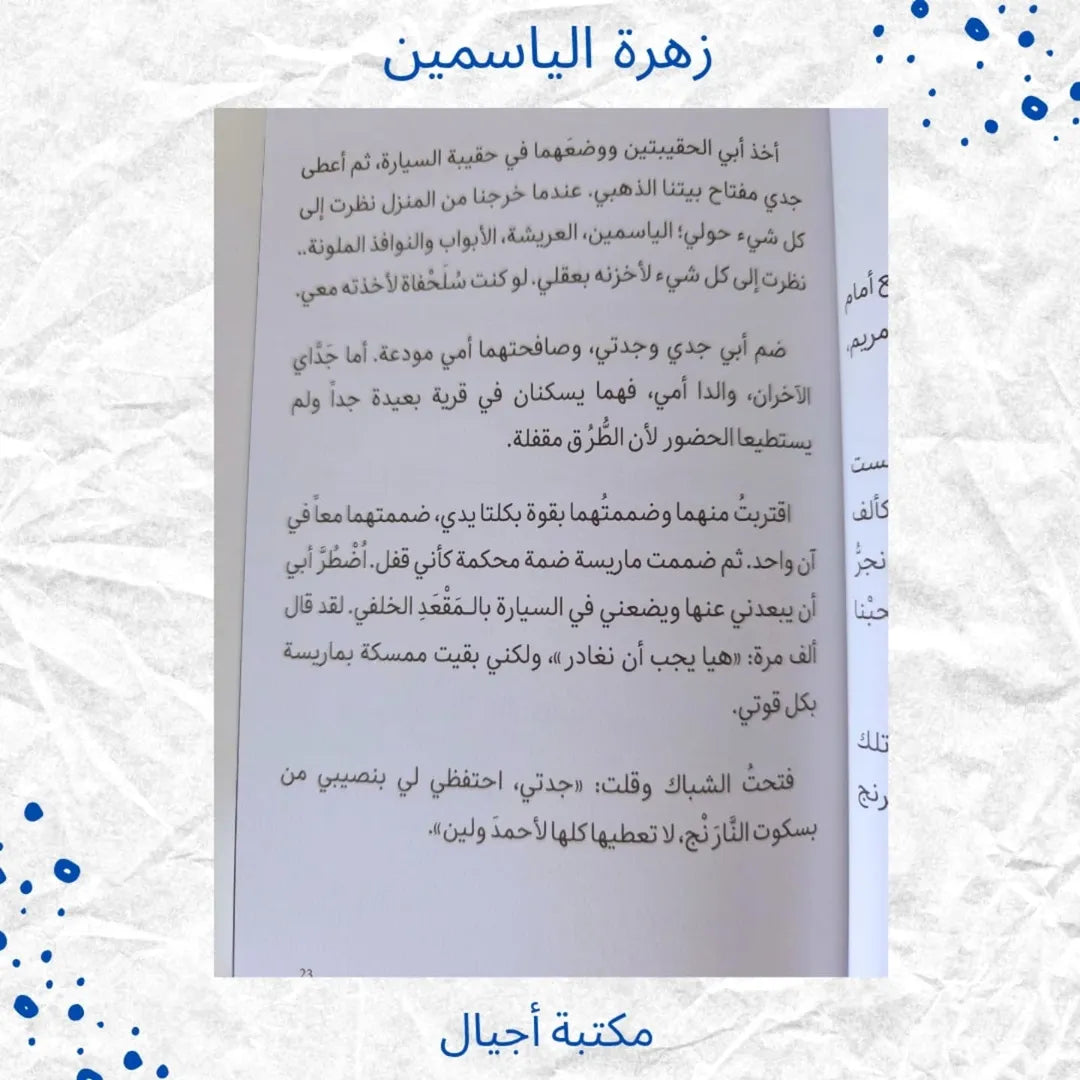 زهرة الياسمين
أخذ أبي الحقيبتين ووضعَهما في حقيبة السيارة، ثم أعطى
جدي مفتاح بيتنا الذهبي. عندما خرجنا من المنزل نظرت إلى
كل شيء حولي؛ الياسمين، العريشة، الأبواب والنوافذ الملونة..
نظرت إلى كل شيء لأخزنه بعقلي. لو كنت سُلَحْفاة لأخذته معي.
ضم أبي جدي وجدتي، وصافحتهما أمي مودعة. أما جَدَّاي
الآخران، والدا أمي، فهما يسكنان في قرية بعيدة جداً ولم
يستطيعا الحضور لأن الطُّرُق مقفلة.
اقتربتُ منهما وضممتُهما بقوة بكلتا يدي، ضممتهما معاً في
آن واحد. ثم ضممت ماريسة ضمة محكمة كأني قفل. اُضْطُرَّ أبي
أن يبعدني عنها ويضعني في السيارة بالـمَقْعَدِ الخلفي. لقد قال
ألف مرة: «هيا يجب أن نغادر»، ولكني بقيت ممسكة بماريسة
بكل قوتي.
فتحتُ الشباك وقلت: «جدتي، احتفظي لي بنصيبي من
بسكوت النَّارَنْج، لا تعطيها كلها لأحمدَ ولين».
23
ع أمام
مريم،
كألف
نجرُّ
حبْنا
تلك
رنج
مكتبة أجيال